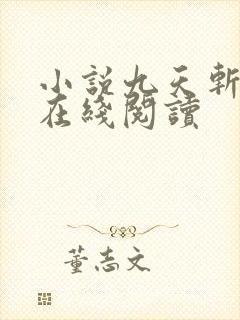 小説九天斬
在綫閱讀
董志文